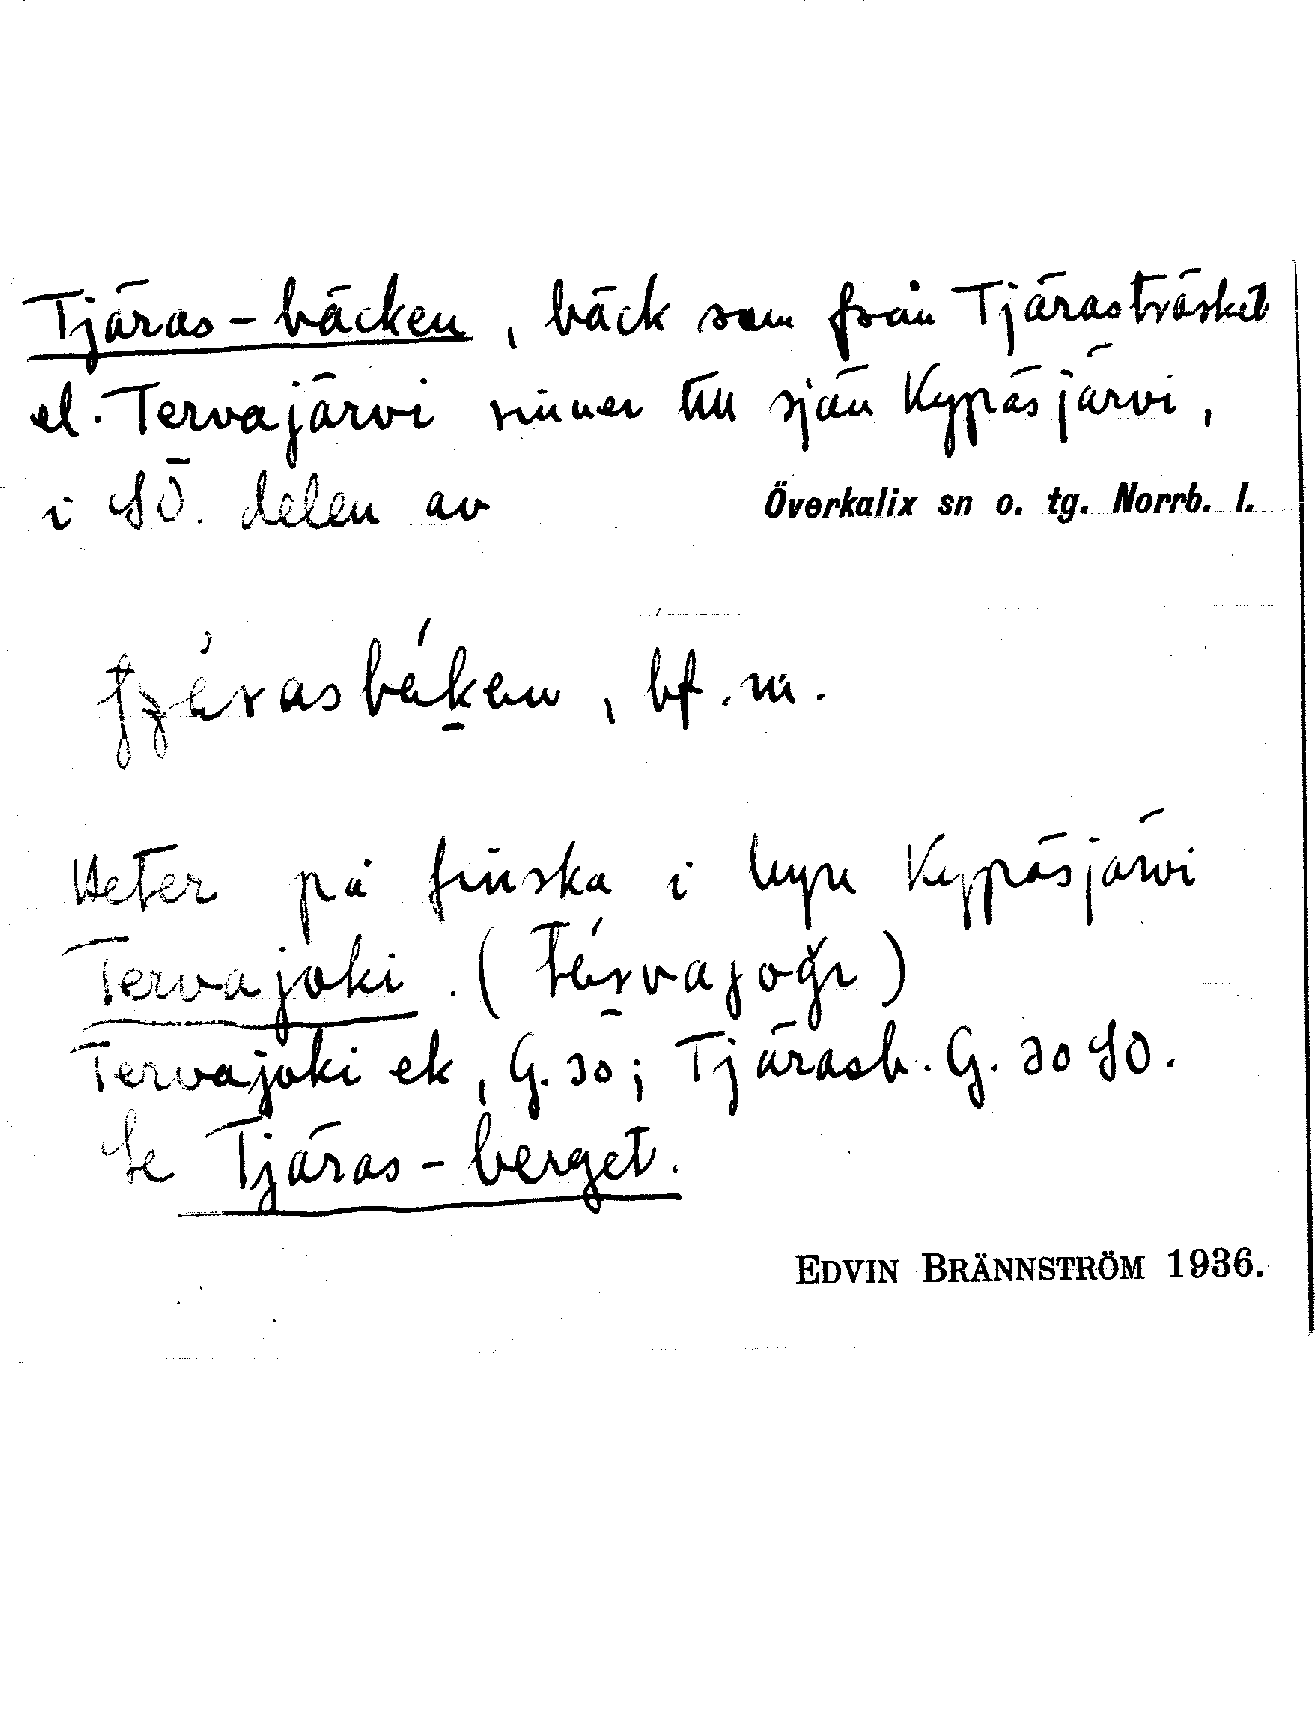 Tjäras-bäcken, bäck som från Tjärasträsket
el. Tervajärvi rinner till sjön Kypäsjärvi,
i SÖ. delen av Överkalix sn o. tg. Norrb. l.
bf. m.
Heter på finska i byn Kypäsjärvi
Tervajoki. (
Tervajoki ek, G. 30; Tjärasb. G. 30 SO.
Se Tjäras-berget.
EDVIN BRÄNNSTRÖM 1936.